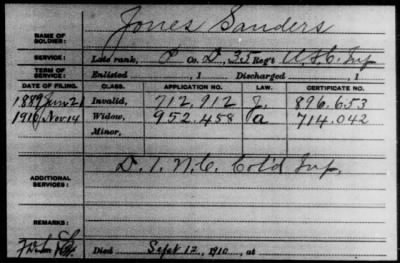 NAME OF SOLDIER: Jones Sanders
SERVICE: Late rank, P Co. D, 35 Reg't U.S.C. Inf
TERM OF SERVICE: Enlisted , 1 Discharged , 1
DATE OF FILING. CLASS. APPLICATION NO. LAW. CERTIFICATE NO.
1889 Jun 21 Invalid, 712,912 J. 896.653
1910 Nov 14 Widow, 952.458 a 714.042
Minor,
ADDITIONAL SERVICES: D. 1. N.C. Col'd Inf.
REMARKS:
Died Sept 12, 1910, at